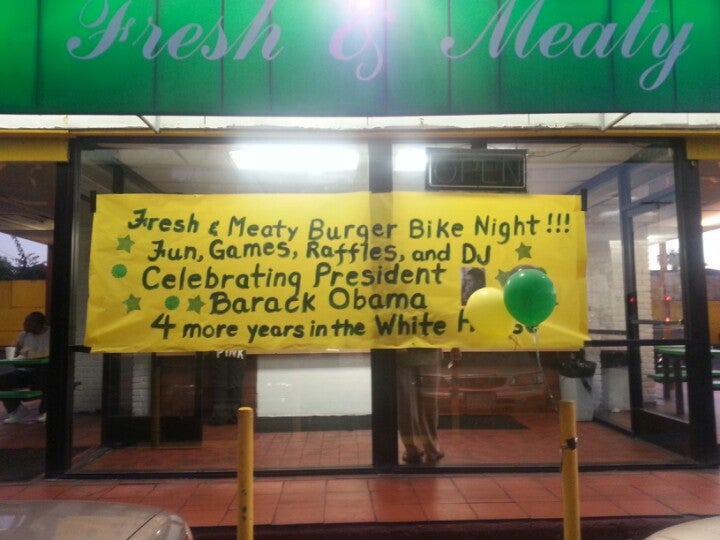 Fresh & Meaty
OPEN
Fresh & Meaty Burger Bike Night!!!
Fun, Games, Raffles, and DJ
Celebrating President
Barack Obama
4 more years in the White
PINK